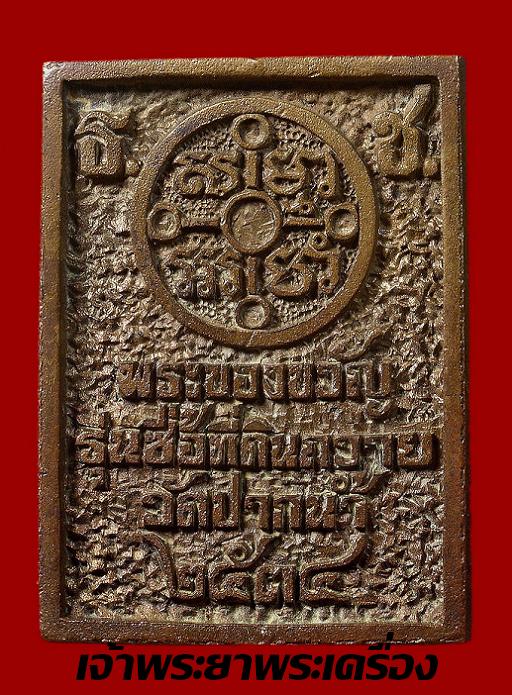 ธ. ช.
พระของขวัญ
รุ่นซื้อที่ดินถวาย
วัดปากน้ำ
๒๕๓๔
เจ้าพระยาพระเครื่อง